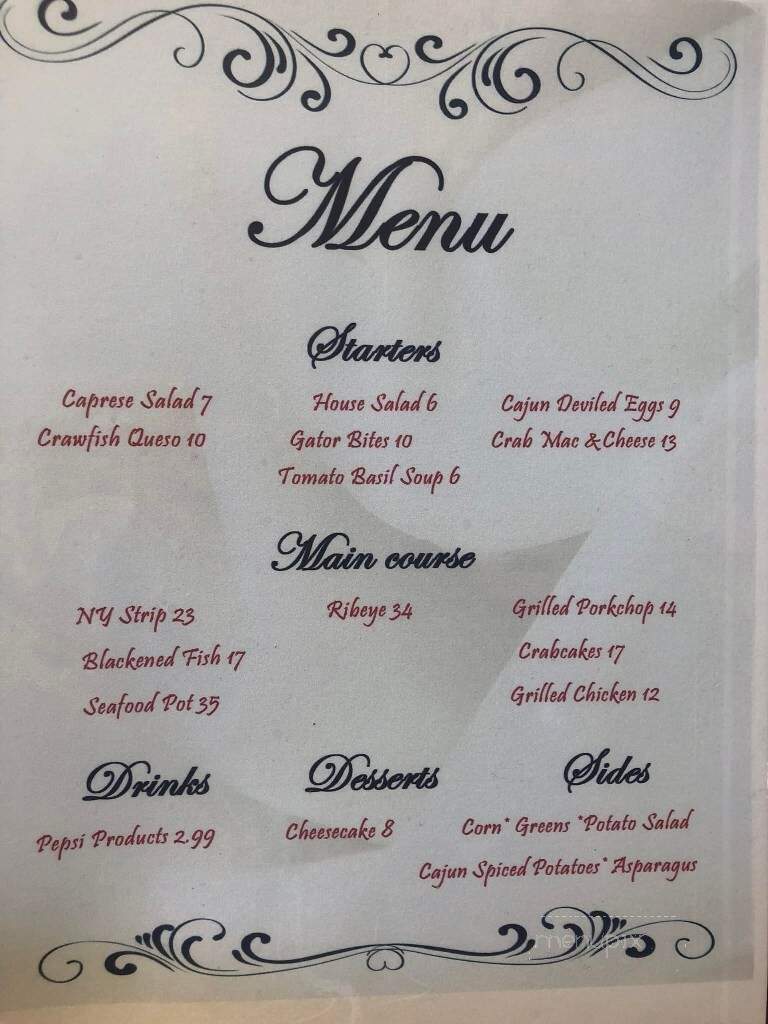 Menu
Starters
Caprese Salad 7 House Salad 6 Cajun Deviled Eggs 9
Crawfish Queso 10 Gator Bites 10 Crab Mac & Cheese 13
Tomato Basil Soup 6
Main course
NY Strip 23 Ribeye 34 Grilled Porkchop 14
Blackened Fish 17 Crabcakes 17
Seafood Pot 35 Grilled Chicken 12
Drinks Desserts Sides
Pepsi Products 2.99 Cheesecake 8 Corn* Greens *Potato Salad
Cajun Spiced Potatoes* Asparagus
menupix